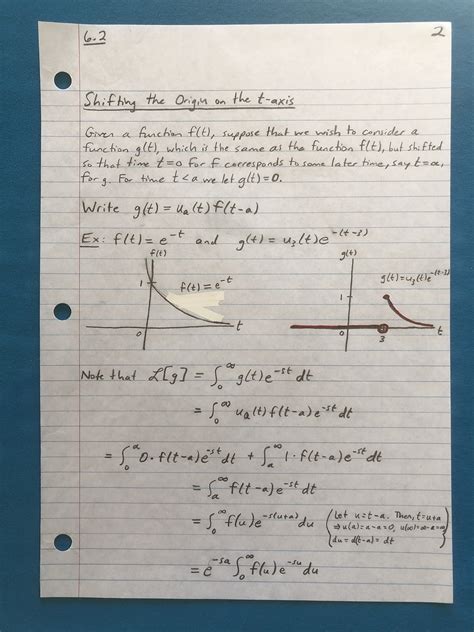 6.2 2
Shifting the Origin on the t-axis
Given a function f(t), suppose that we wish to consider a
function g(t), which is the same as the function f(t), but shifted
so that time t=0 for f corresponds to some later time, say t=a,
for g. For time t<a we let g(t)=0.
Write g(t) = uₐ(t) f(t-a)
Ex: f(t) = e^{-t} and g(t) = u₃(t)e^{-(t-3)}
f(t) g(t)
f(t) = e^{-t} g(t)=u₃(t)e^{-(t-3)}
1 1
0 t 0 3 t
Note that ℒ[g] = ∫₀^∞ g(t)e^{-st} dt
= ∫₀^∞ uₐ(t) f(t-a)e^{-st} dt
= ∫₀^a 0·f(t-a)e^{-st} dt + ∫ₐ^∞ 1·f(t-a)e^{-st} dt
= ∫ₐ^∞ f(t-a)e^{-st} dt
= ∫₀^∞ f(u)e^{-s(u+a)} du (Let u=t-a. Then, t=u+a
⇒ u(a)=a-a=0, u(∞)=∞-a=∞
du=d(t-a)=dt)
= e^{-sa} ∫₀^∞ f(u)e^{-su} du